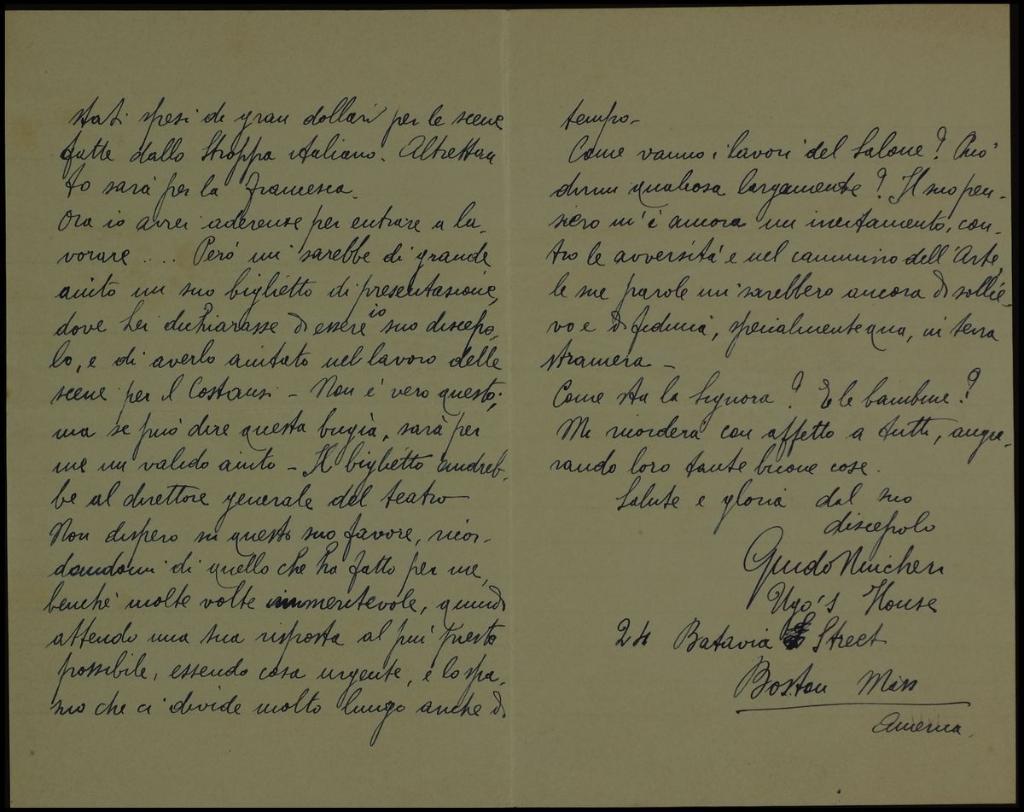 stati spesi di gran dollari per le scene
fatte dallo Stroppa italiano. Altrettan
to sarà per la Francesca.
Ora io avrei aderense per entrare a la-
vorare .... Però mi sarebbe di grande
aiuto un suo biglietto di presentasione,
dove Lei dichiarasse di essere io suo discepo-
lo, e di averlo aiutato nel lavoro delle
scene per il Costansi - Non è vero questo;
ma se può dire questa bugia, sarà per
me un valido aiuto - Il biglietto andreb-
be al direttore generale del teatro
Non dispero in questo suo favore, ricor-
dandomi di quello che ha fatto per me,
benchè molte volte immeritevole, quindi
attendo una sua risposta al più presto
possibile, essendo cosa urgente, e lo spa-
sio che ci divide molto lungo anche di
tempo-
Come vanno i lavori del Salone? Può
dirmi qualcosa largamente? Il suo pen-
siero m'è ancora un incitamento, con-
tro le avversità e nel cammino dell'Arte,
le sue parole mi sarebbero ancora di sollie-
vo e di fiducia, specialmente qua, in terra
straniera -
Come sta la Signora? E le bambine?
Mi ricorderà con affetto a tutti, augu-
rando loro tante buone cose.
Salute e gloria dal suo
discepolo
Guido Nincheri
Ugo's House
24 Batavia Street
Boston Mass
America.